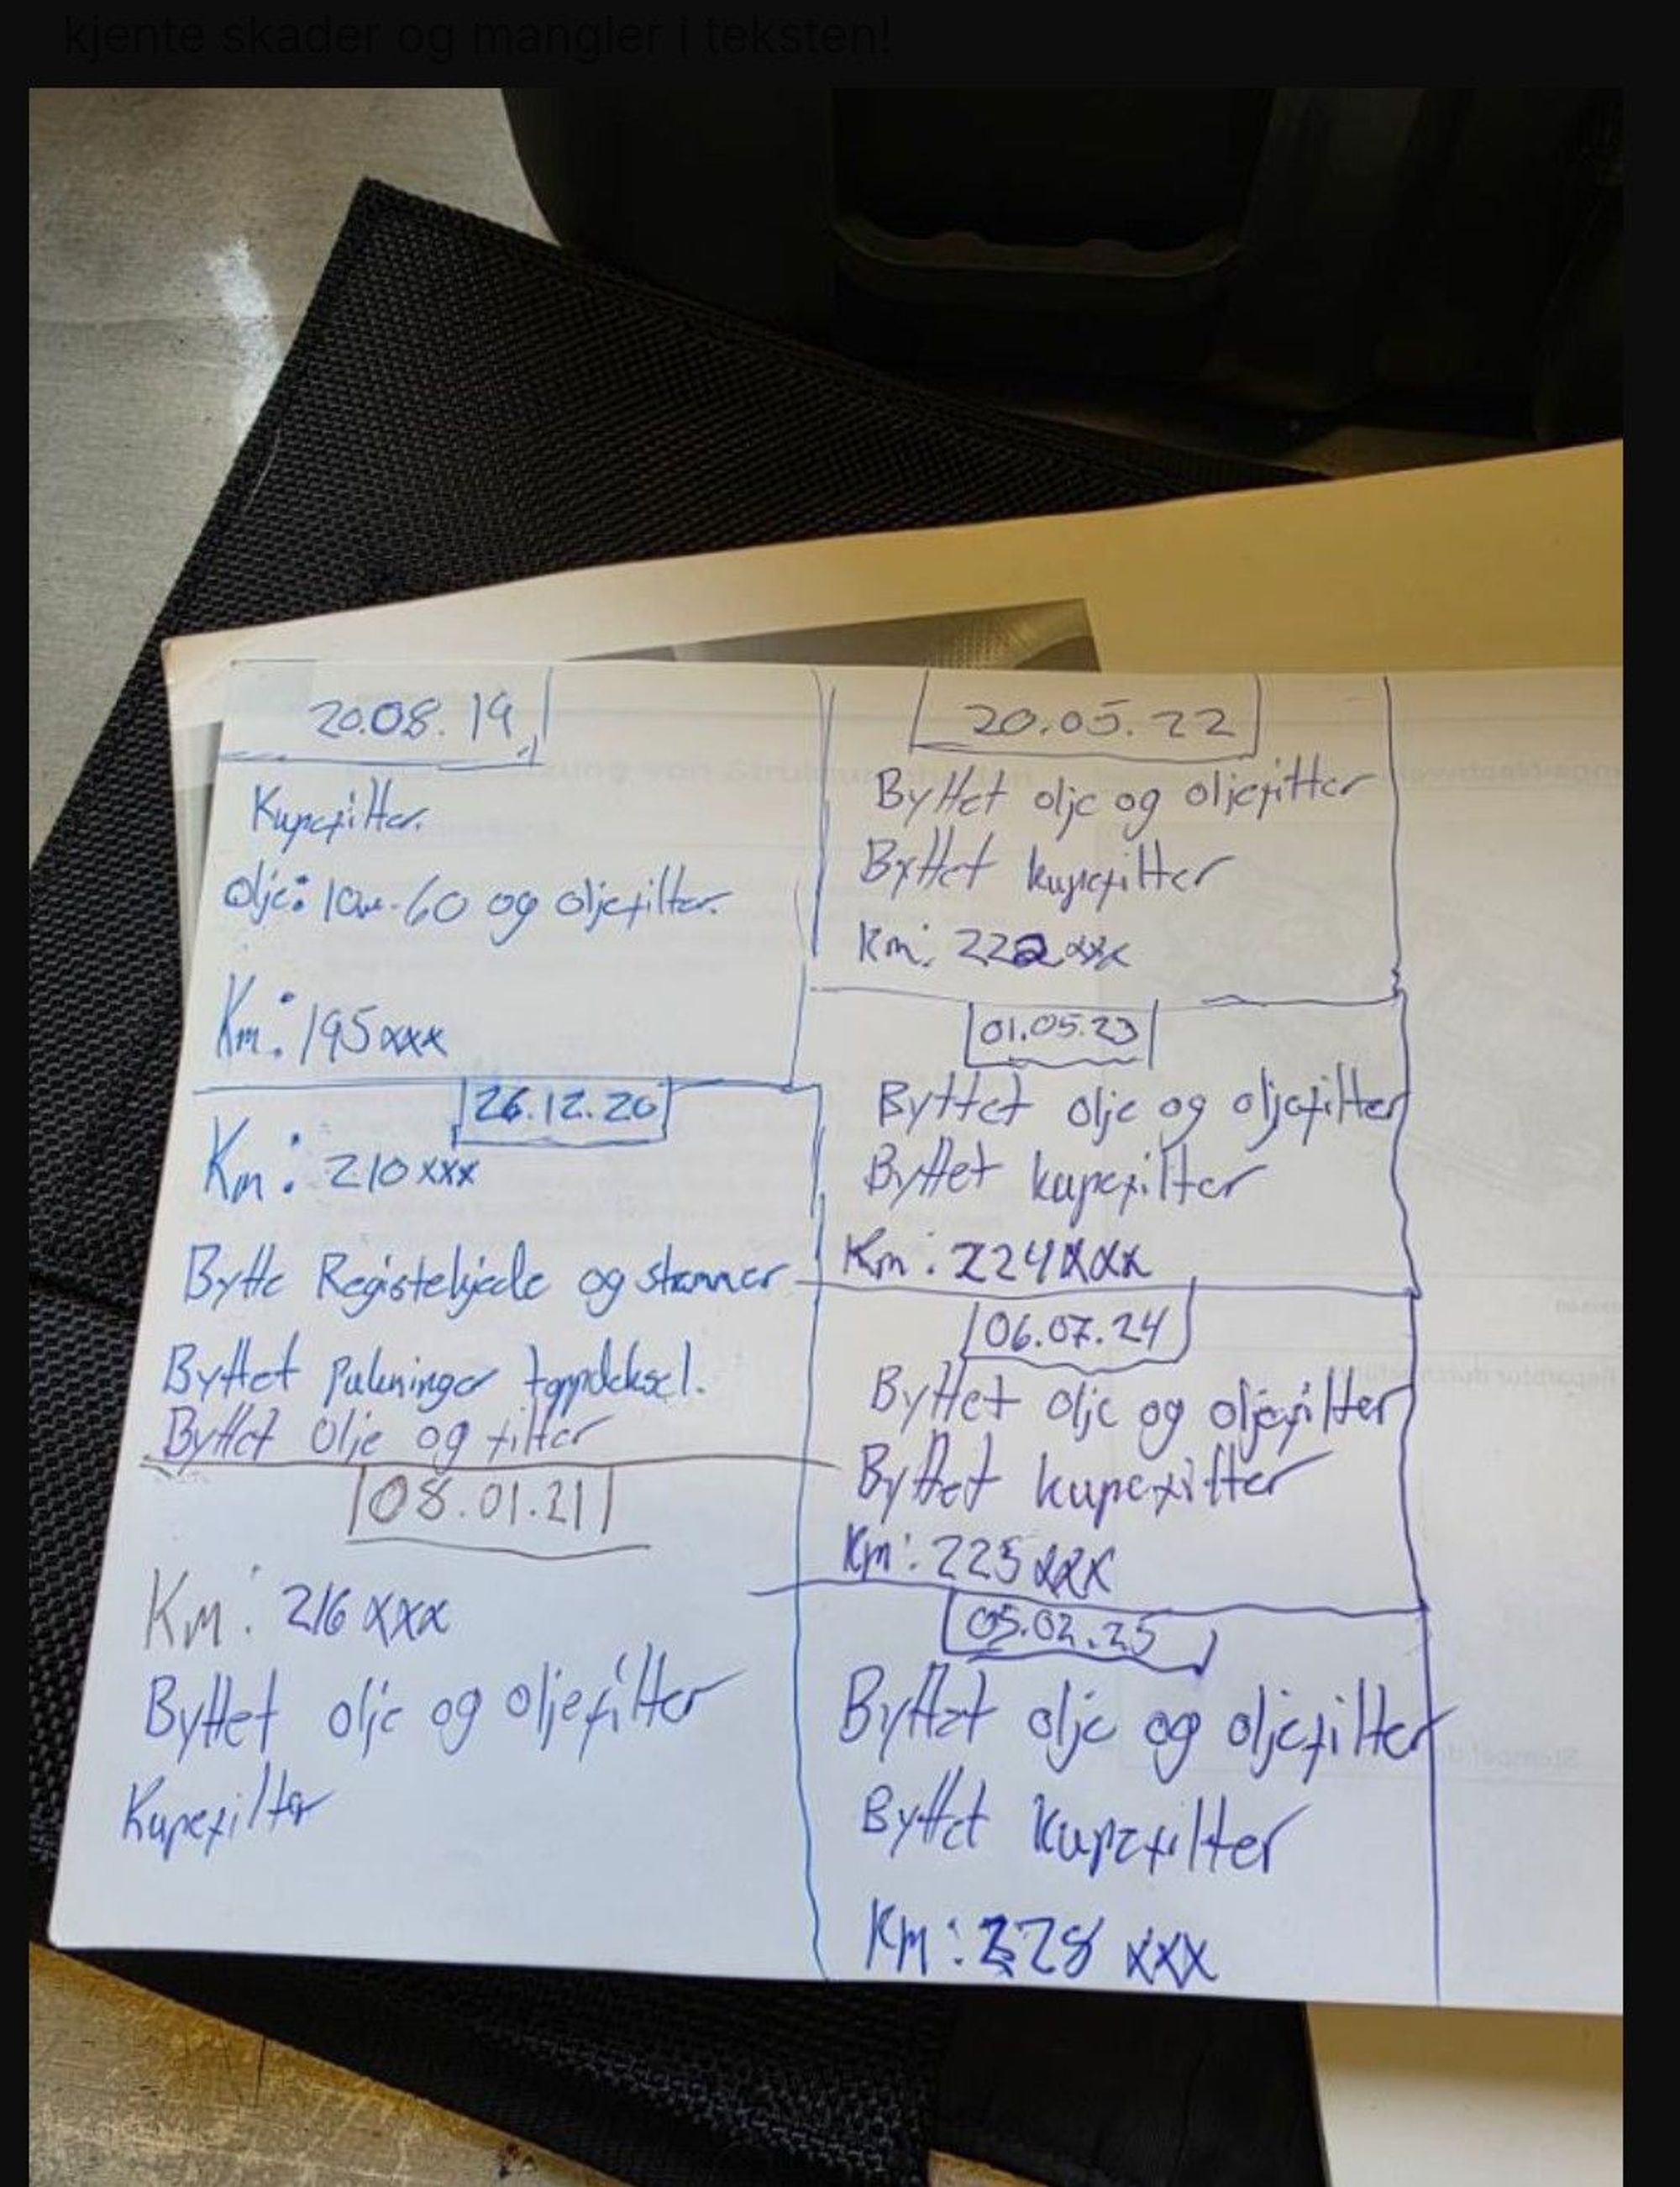 kjente skader og mangler i teksten!
20.08.19
Kupefilter.
Olje: 10w-60 og oljefilter.
Km: 195xxx
26.12.20
Km: 210xxx
Bytte Registekjede og strammer
Byttet Pakninger toppdeksel.
Byttet Olje og filter
08.01.21
Km: 216 xxx
Byttet olje og oljefilter
Kupefilter
20.05.22
Byttet olje og oljefilter
Byttet kupefilter
Km: 222 xxx
01.05.23
Byttet olje og oljefilter
Byttet kupefilter
Km: 224xxx
06.07.24
Byttet olje og oljefilter
Byttet kupefilter
Km: 225 xxx
05.02.25
Byttet olje og oljefilter
Byttet kupefilter
Km: 228 xxx